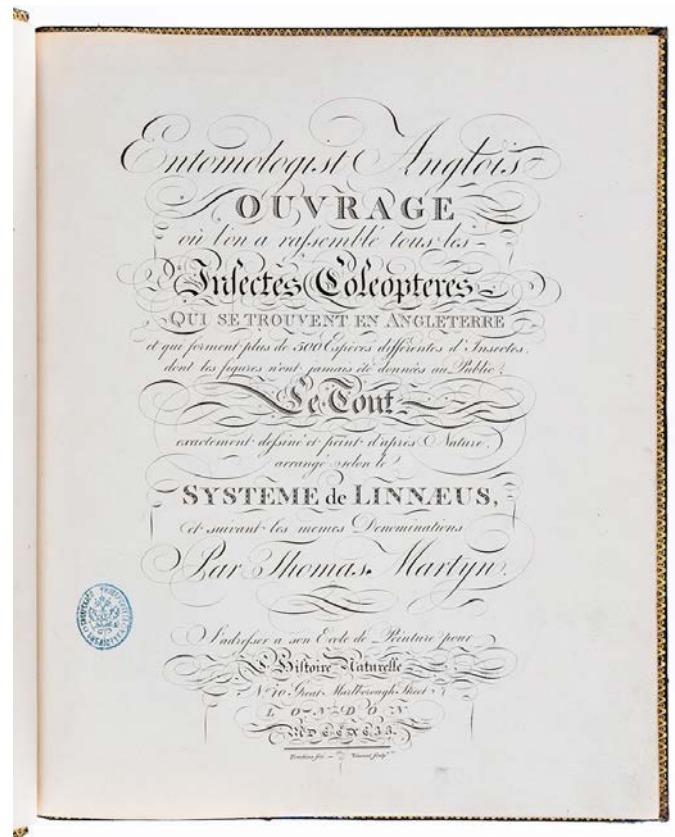 Entomologist Anglois
OUVRAGE
où l'on a rassemblé tous les
Insectes Coleopteres
QUI SE TROUVENT EN ANGLETERRE
et qui forment plus de 500 Espèces différentes d'Insectes,
dont les figures n'ont jamais été données au Public;
Le Tout
exactement dessiné et peint d'après Nature,
arrangé selon le
SYSTEME de LINNÆUS,
et suivant les memes Denominations
Par Thomas Martyn.
S'adresser a son Ecole de Peinture pour
L'Histoire Naturelle
No. 10 Great Marlborough Street
LONDON
MDCCXCII.